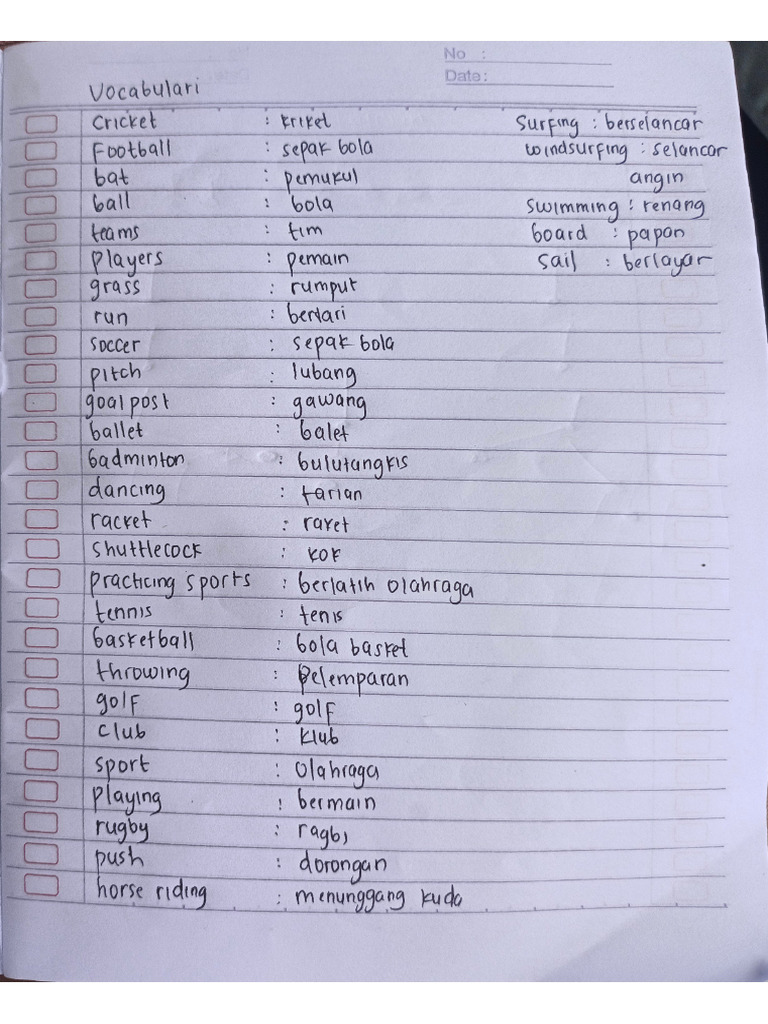 No :
Date:
Vocabulari
Cricket : kriket
Football : sepak bola
bat : pemukul
ball : bola
teams : tim
players : pemain
grass : rumput
run : berlari
soccer : sepak bola
pitch : lubang
goal post : gawang
ballet : balet
badminton : bulutangkis
dancing : tarian
racket : raket
shuttlecock : kok
practicing sports : berlatih olahraga
tennis : tenis
basketball : bola basket
throwing : pelemparan
golf : golf
club : klub
sport : olahraga
playing : bermain
rugby : ragbi
push : dorongan
horse riding : menunggang kuda
Surfing : berselancar
windsurfing : selancar
angin
swimming : renang
board : papan
Sail : berlayar